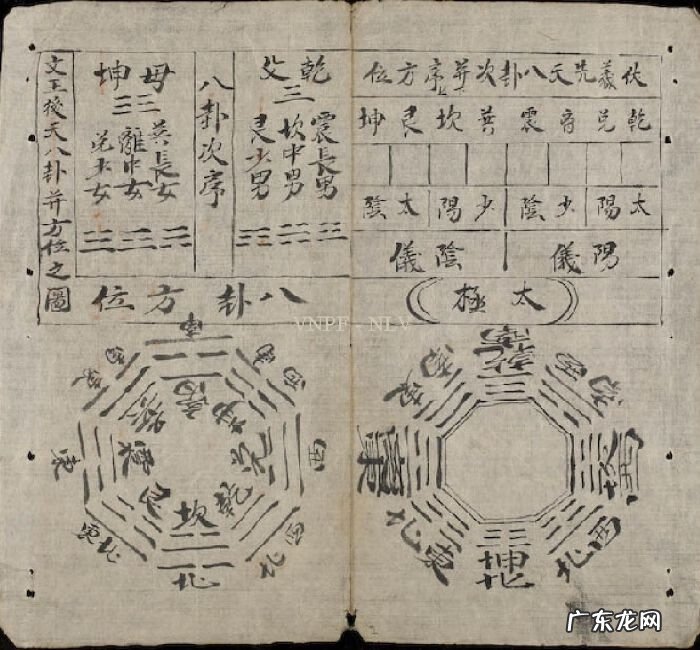 伏羲先天八卦次序并方位
乾兌离震巽坎艮坤
太陽少陰少陽太陰
陽儀陰儀
太極
南乾
東南
離東
東北
坤北
西北
坎西
西南
乾父
震長男
坎中男
艮少男
八卦次序
坤母
巽長女
離中女
兌少女
文王後天八卦并方位之圖
八卦方位
南
離
坤
兌
西
乾
西北
坎
北
艮
東北
震
東
巽
VNPF - NLV
广东龙网